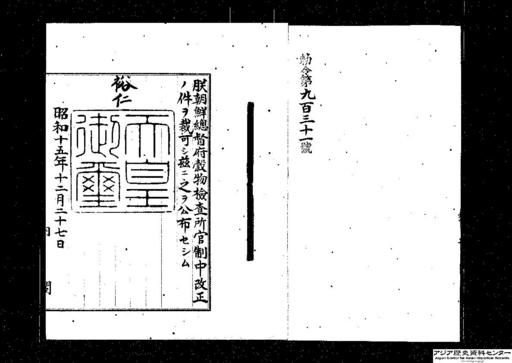 勅令第九百三十一號
朕朝鮮總督府穀物檢查所官制中改正
ノ件ヲ裁可シ茲ニ之ヲ公布セシム
裕仁
天皇
御璽
昭和十五年十二月二十七日
内閣
アジア歴史資料センター
Japan Center for Asian Historical Records